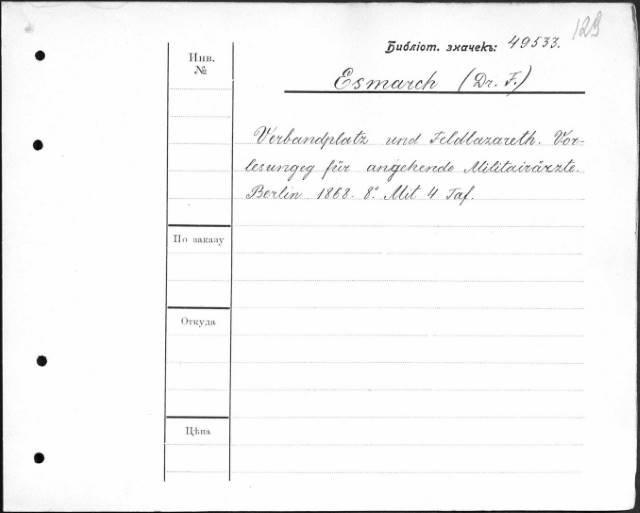 129
Библіот. значекъ: 49533.
Инв.
№
Esmarch (Dr. F.)
Verbandplatz und Feldlazareth. Vor-
lesungeg für angehende Militairärzte.
Berlin 1868. 8° Mit 4 Taf.
По заказу
Откуда
Цѣна